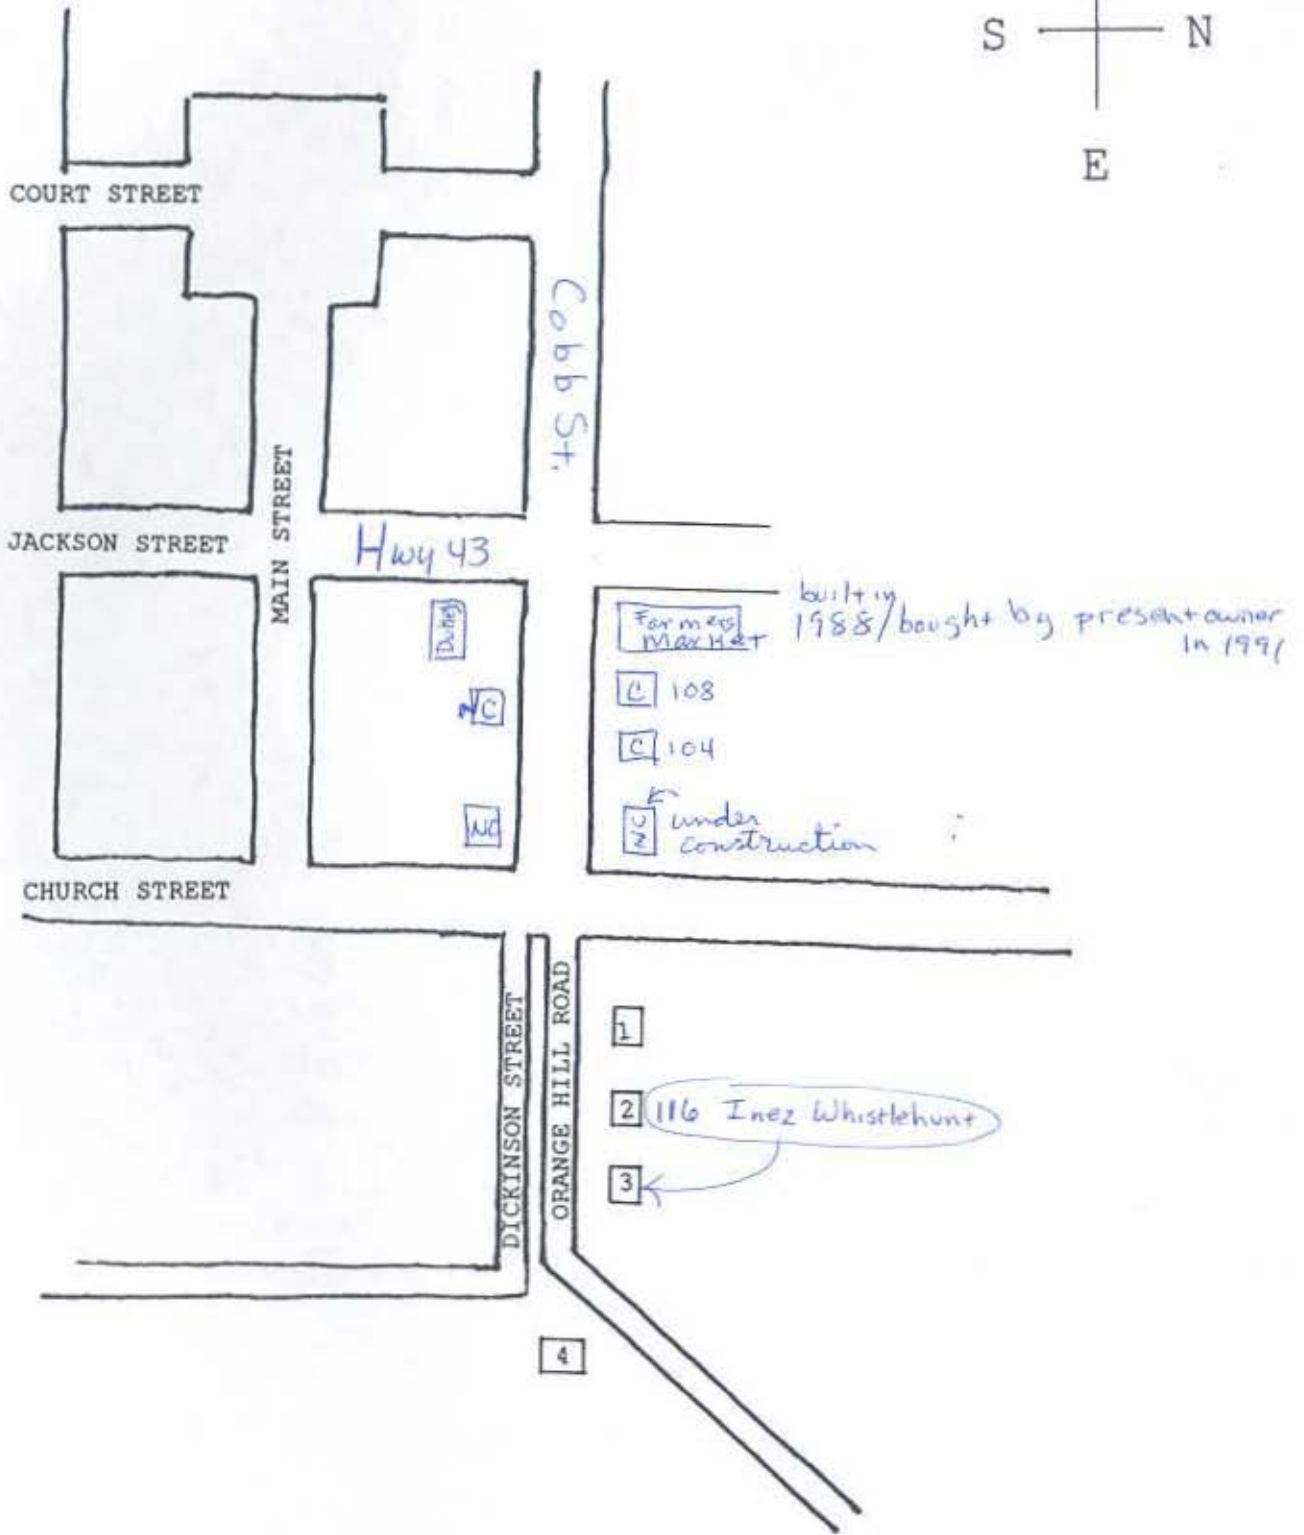 S N
E
COURT STREET
Cobb St.
MAIN STREET
JACKSON STREET
Hwy 43
built in
1988/bought by present owner
in 1991
Farmers
Market
C 108
C
C 104
NC
NC
under
construction
CHURCH STREET
DICKINSON STREET
ORANGE HILL ROAD
1
2 116 Inez Whistlehunt
3
4